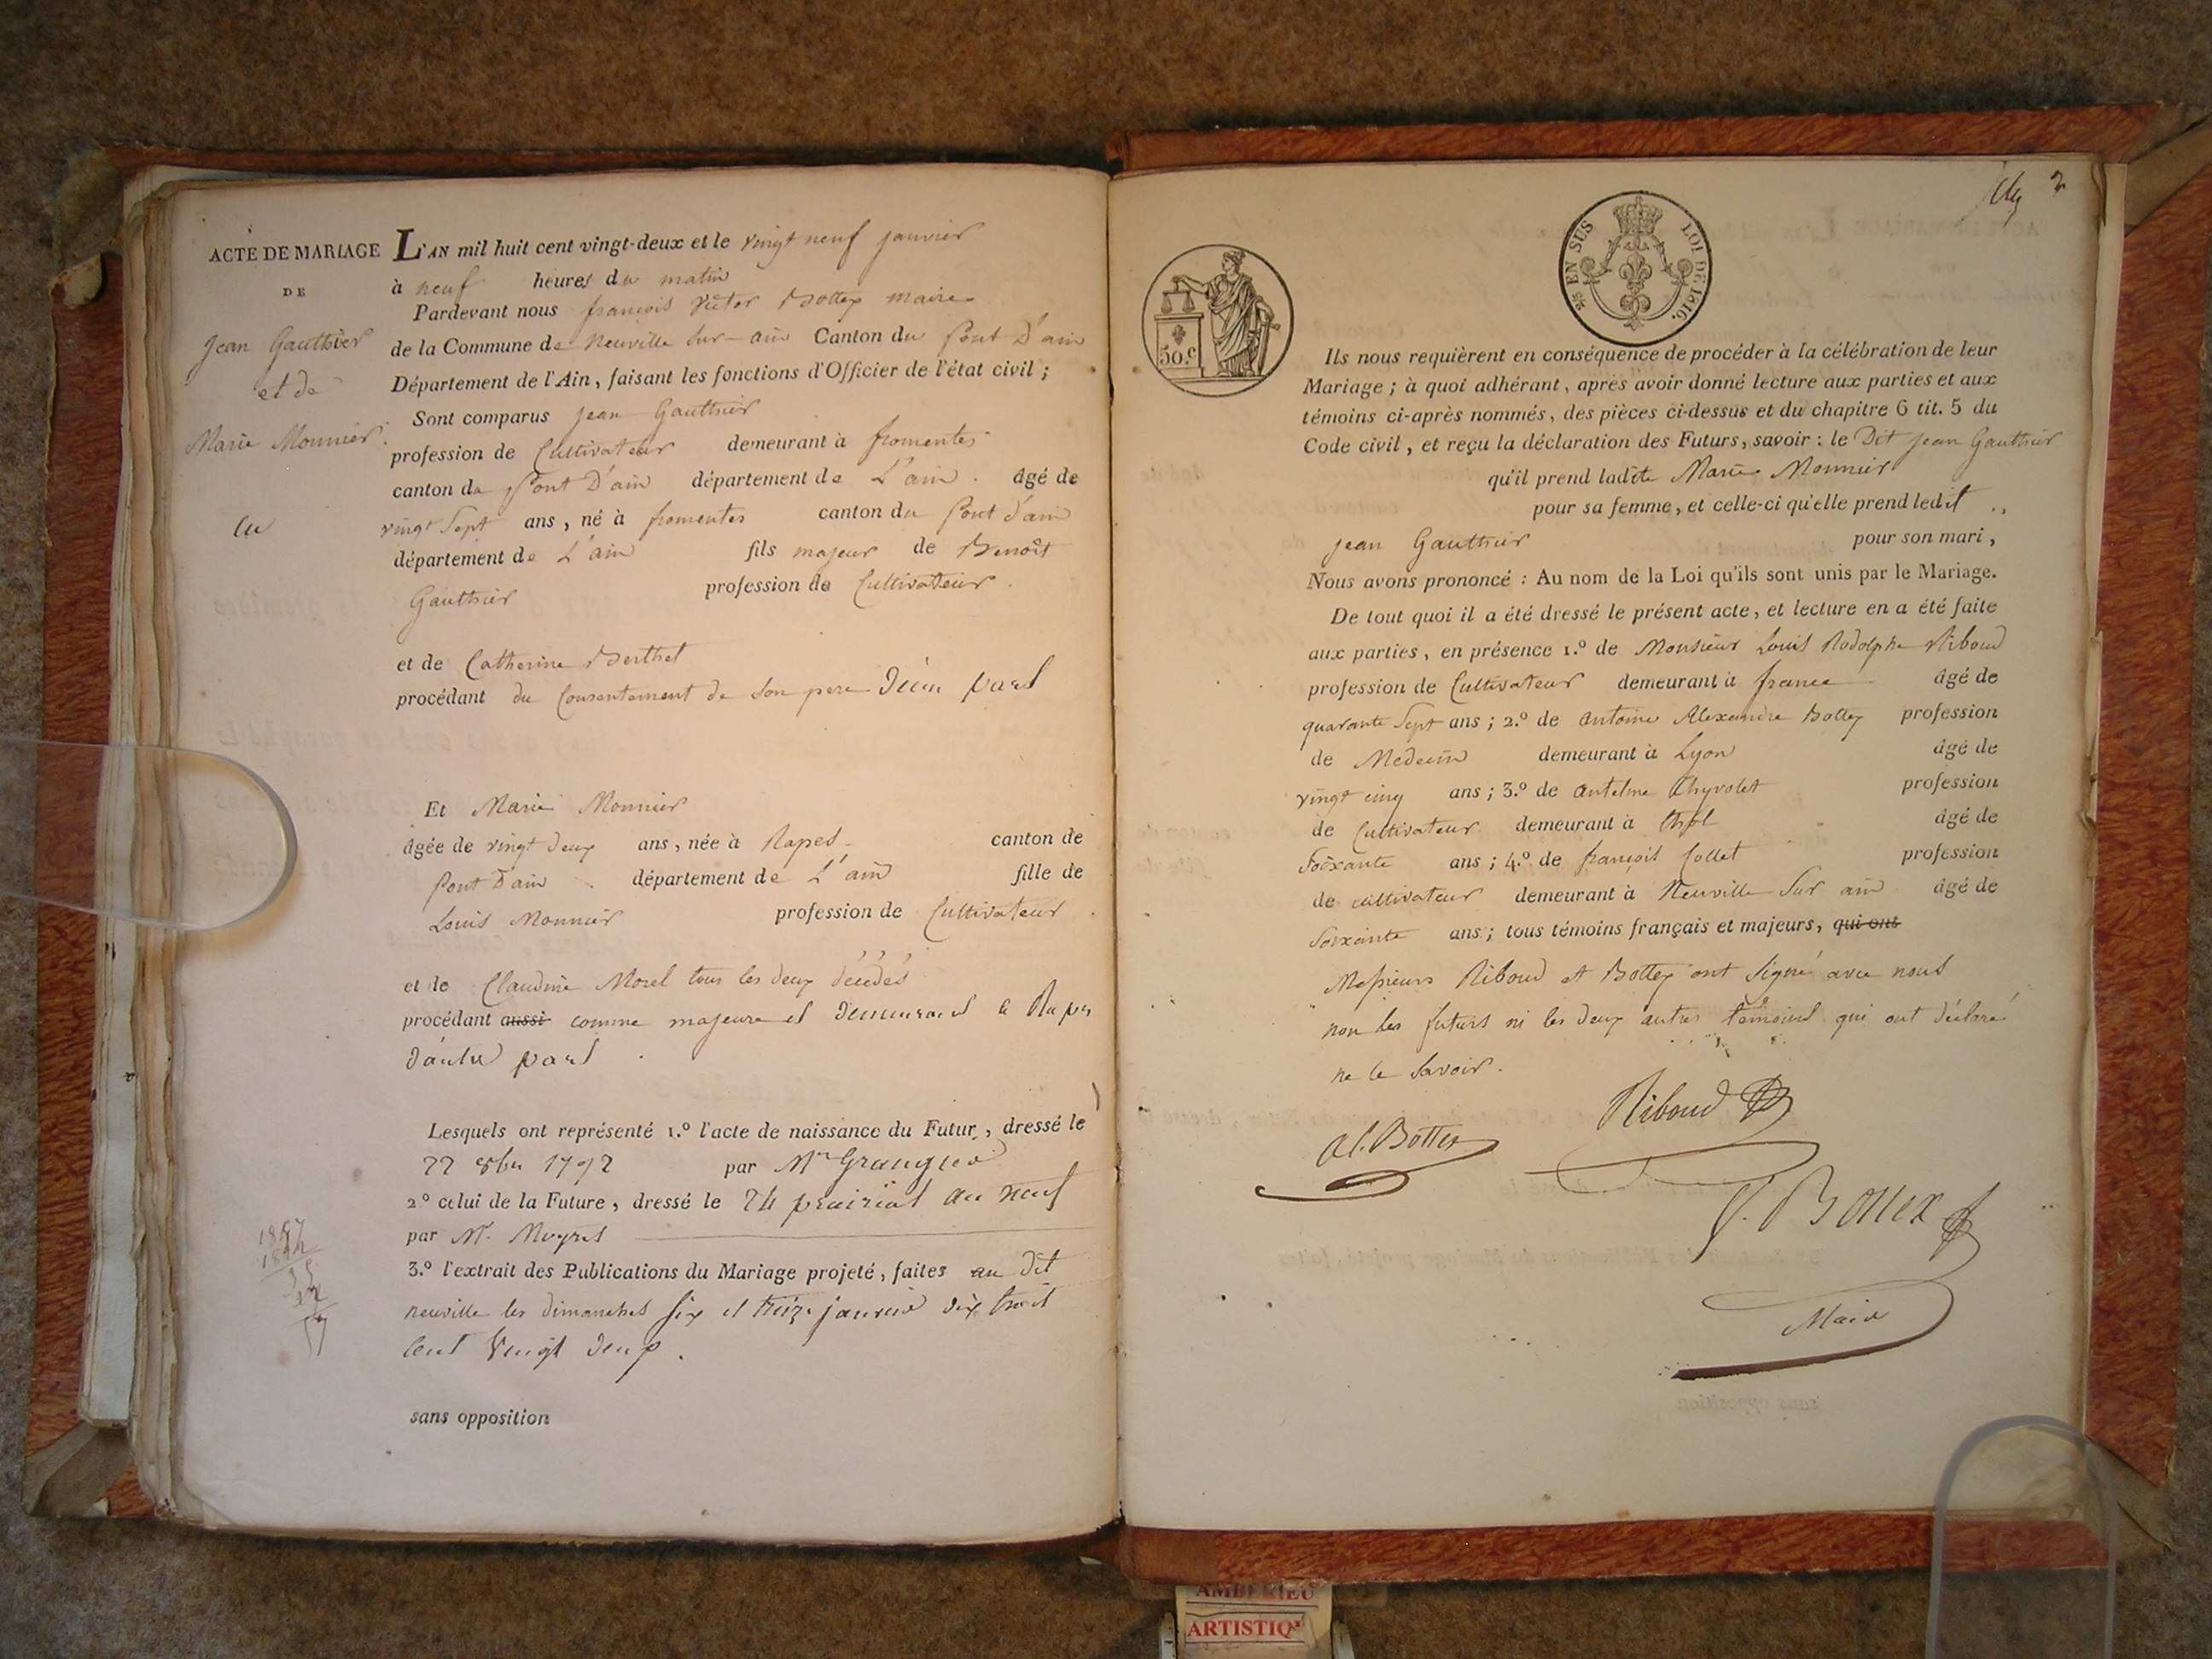 ACTE DE MARIAGE
DE
Jean Gauthier
et de
Marie Monnier
L'AN mil huit cent vingt-deux et le vingt neuf janvier
à neuf heures du matin
Pardevant nous françois Victor Bottex maire
de la Commune de Neuville sur-ain Canton du Pont D'ain
Département de l'Ain, faisant les fonctions d'Officier de l'état civil ;
Sont comparus Jean Gauthier
profession de Cultivateur demeurant à fromentes
canton de Pont D'ain département de L'ain . âgé de
vingt Sept ans, né à fromentes canton du Pont d'ain
département de L'ain fils majeur de Benoît
Gauthier profession de Cultivateur .
et de Catherine Berthet
procédant du Consentement de son pere D'une part
Et Marie Monnier
âgée de vingt deux ans, née à Rapes canton de
Pont D'ain département de L'ain fille de
Louis Monnier profession de Cultivateur .
et de Claudine Morel tous les deux décédés
procédant aussi comme majeure et demeurant à Rapes
d'autre part .
Lesquels ont représenté 1.º l'acte de naissance du Futur, dressé le
22 8bre 1792 par Mr
2º celui de la Future, dressé le 24 prairial an neuf
par Mr.
3.º l'extrait des Publications du Mariage projeté, faites au Dit
neuville les dimanches six et treize janvier dix huit
cent vingt deux .
sans opposition
2
2/5 EN SUS LOI DE 1816.
50.c
Ils nous requièrent en conséquence de procéder à la célébration de leur
Mariage ; à quoi adhérant, après avoir donné lecture aux parties et aux
témoins ci-après nommés, des pièces ci-dessus et du chapitre 6 tit. 5 du
Code civil, et reçu la déclaration des Futurs, savoir : le Dit Jean Gauthier
qu'il prend ladite Marie Monnier
pour sa femme, et celle-ci qu'elle prend ledit
Jean Gauthier pour son mari,
Nous avons prononcé : Au nom de la Loi qu'ils sont unis par le Mariage.
De tout quoi il a été dressé le présent acte, et lecture en a été faite
aux parties, en présence 1.º de Monsieur Louis Rodolphe Riboud
profession de Cultivateur demeurant à france âgé de
quarante Sept ans ; 2.º de antoine Alexandre Bottex profession
de Medecin demeurant à Lyon âgé de
vingt cinq ans ; 3.º de antelme profession
de Cultivateur demeurant à thol âgé de
Soixante ans ; 4.º de françois Collet profession
de cultivateur demeurant à Neuville Sur ain âgé de
Soixante ans ; tous témoins français et majeurs, qui ont
Messieurs Riboud et Bottex ont signé avec nous
non les futurs ni les deux autres témoins qui ont déclaré
ne le savoir .
Riboud
al. Bottex
V. Bottex
Maire
AMBERIEU
ARTISTIQ